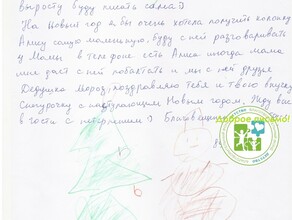 вырасту буду писать сама:)
На Новый год я бы очень хотела получить колонку
Алису самую маленькую, буду с ней разговаривать
у Мамы в телефоне есть Алиса иногда мама
мне дает с ней поболтать и мы с ней друзья
Дедушка Мороз, поздравляю тебя и твою внучку
Снегурочку с наступающим Новым годом. Жду вас
в гости с нетерпением:)
Доброе письмо!